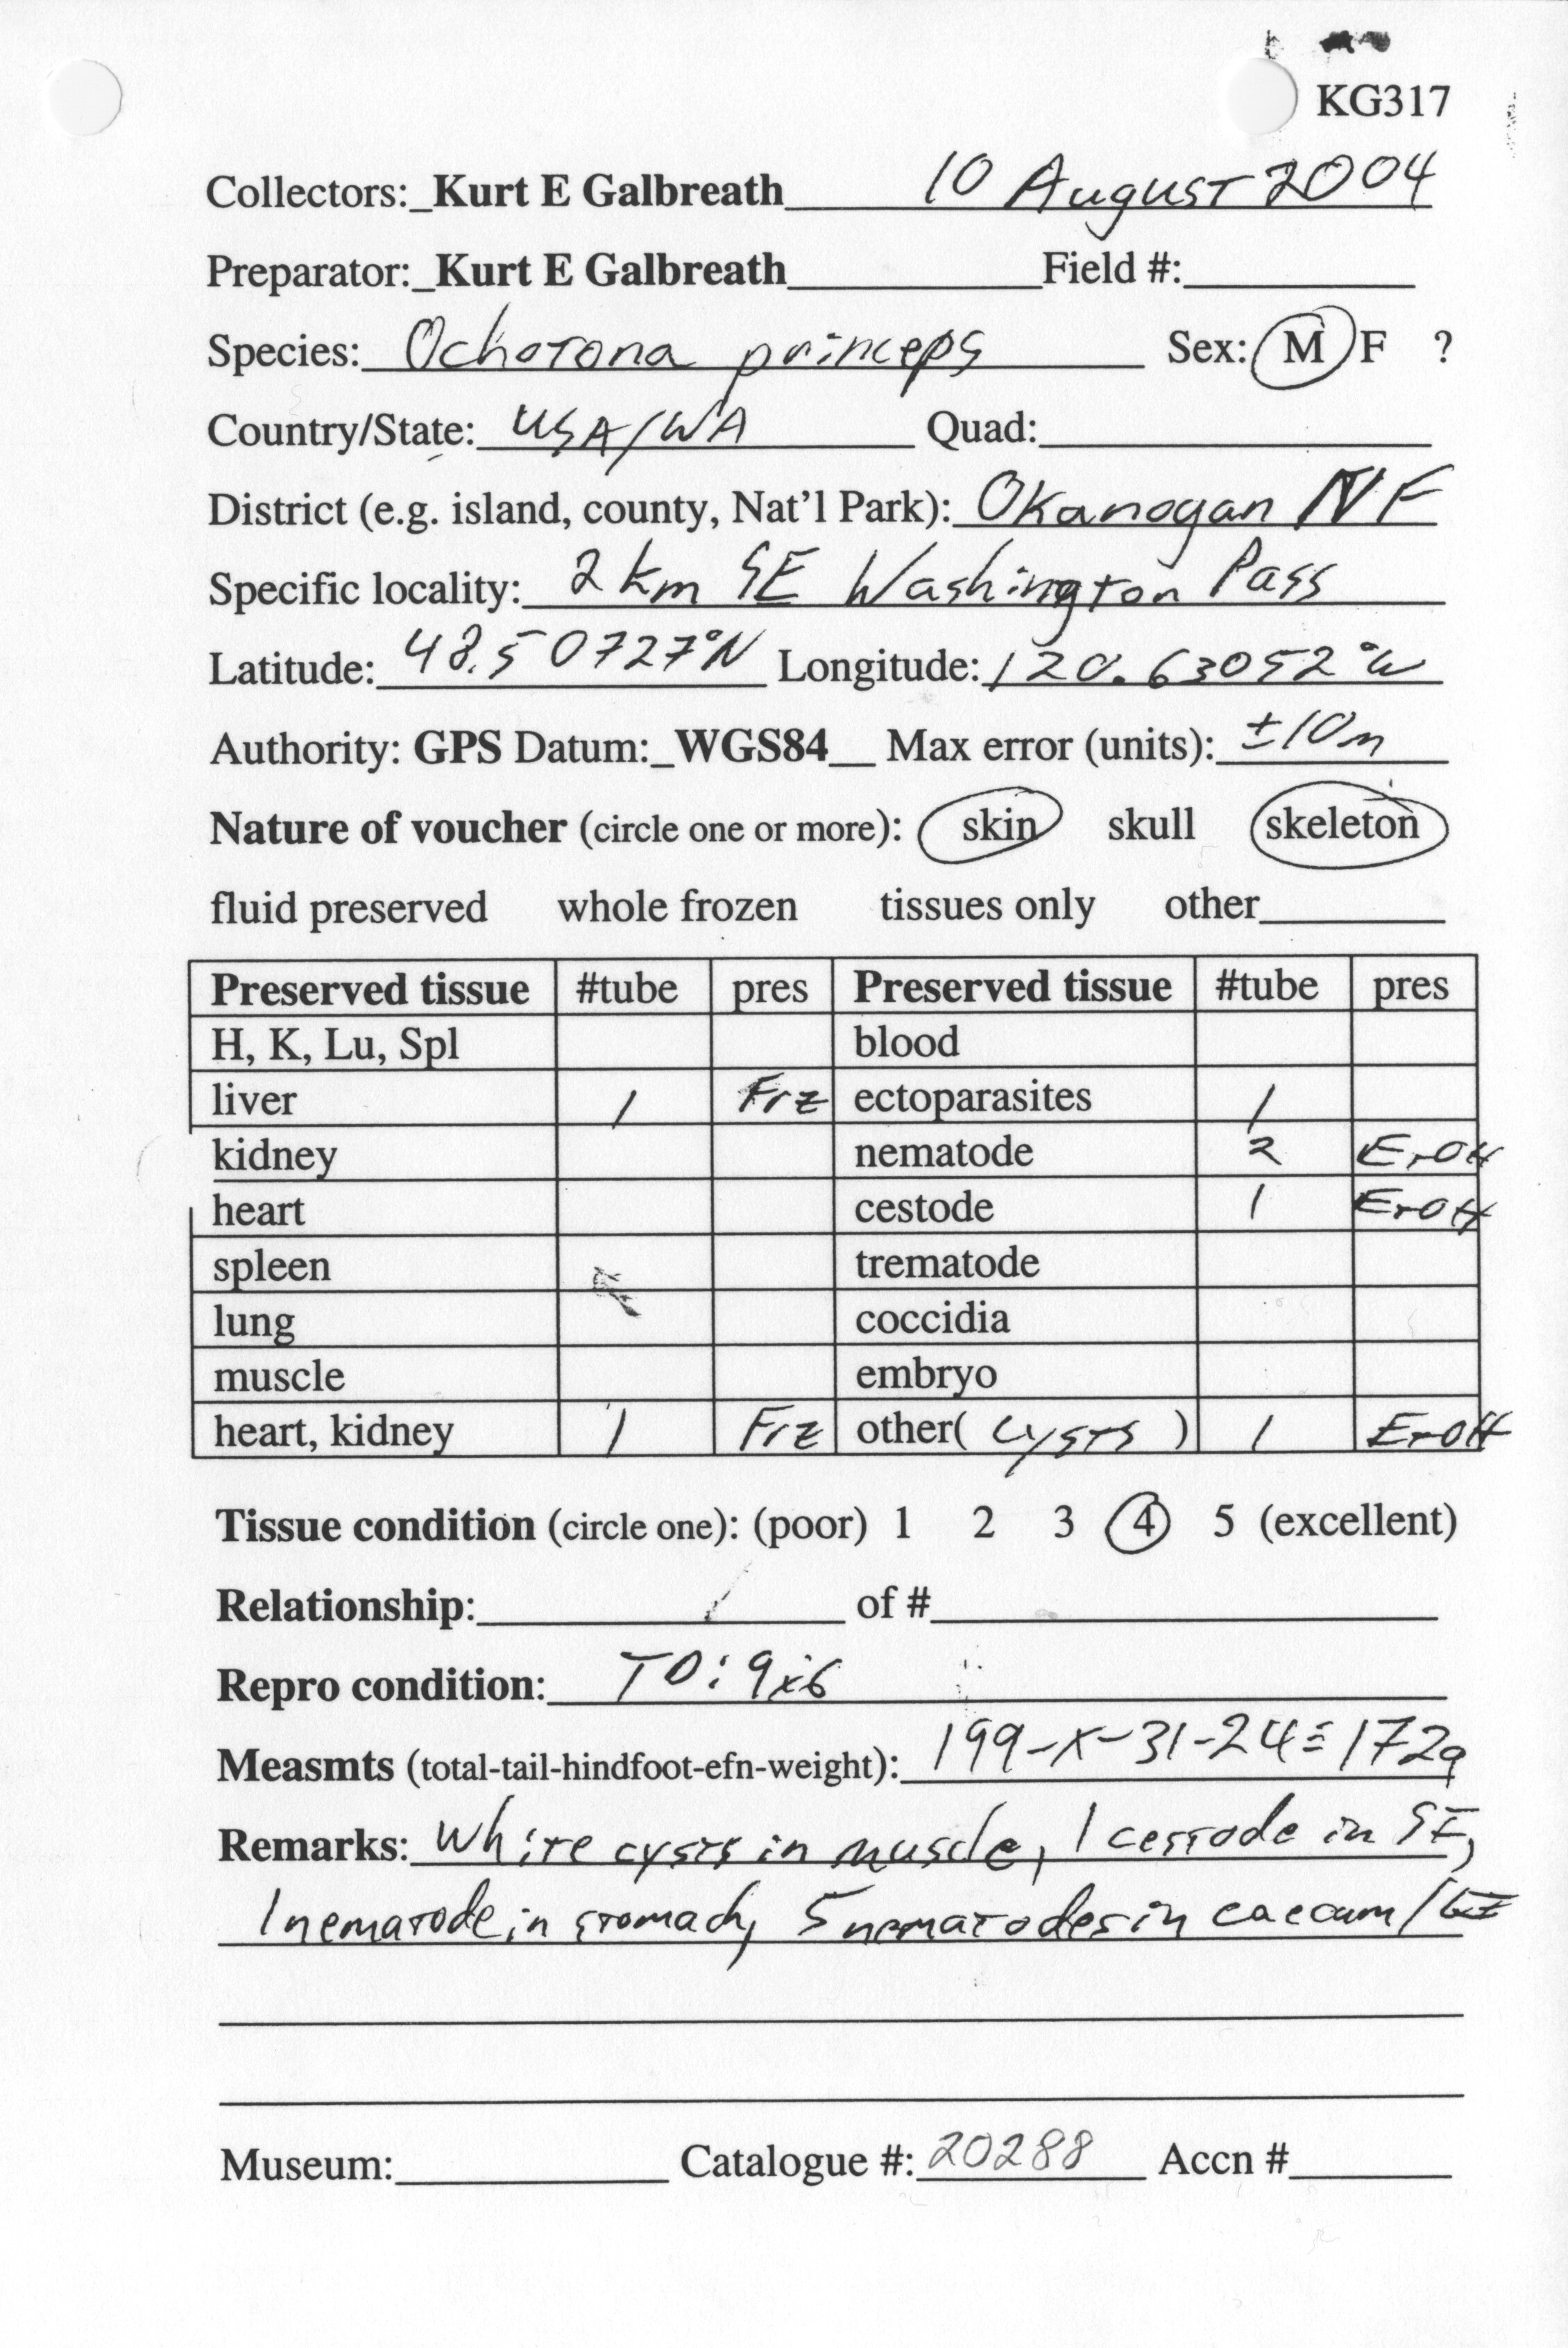 KG317
Collectors: Kurt E Galbreath 10 August 2004
Preparator: Kurt E Galbreath Field #:
Species: Ochotona princeps Sex: M F ?
Country/State: USA/WA Quad:
District (e.g. island, county, Nat'l Park): Okanogan NF
Specific locality: 2 km SE Washington Pass
Latitude: 48.50727°N Longitude: 120.63052°W
Authority: GPS Datum: WGS84 Max error (units): ±10m
Nature of voucher (circle one or more): skin skull skeleton
fluid preserved whole frozen tissues only other
Preserved tissue #tube pres Preserved tissue #tube pres
H, K, Lu, Spl blood
liver 1 Frz ectoparasites 1
kidney nematode 2 EtOH
heart cestode 1 EtOH
spleen trematode
lung coccidia
muscle embryo
heart, kidney 1 Frz other( cysts ) 1 EtOH
Tissue condition (circle one): (poor) 1 2 3 4 5 (excellent)
Relationship: of #
Repro condition: TD: 9x6
Measmts (total-tail-hindfoot-efn-weight): 199-x-31-24≡172g
Remarks: White cysts in muscle, 1 cestode in SI,
1 nematode in stomach, 5 nematodes in caecum/
Museum: Catalogue #: 20288 Accn #